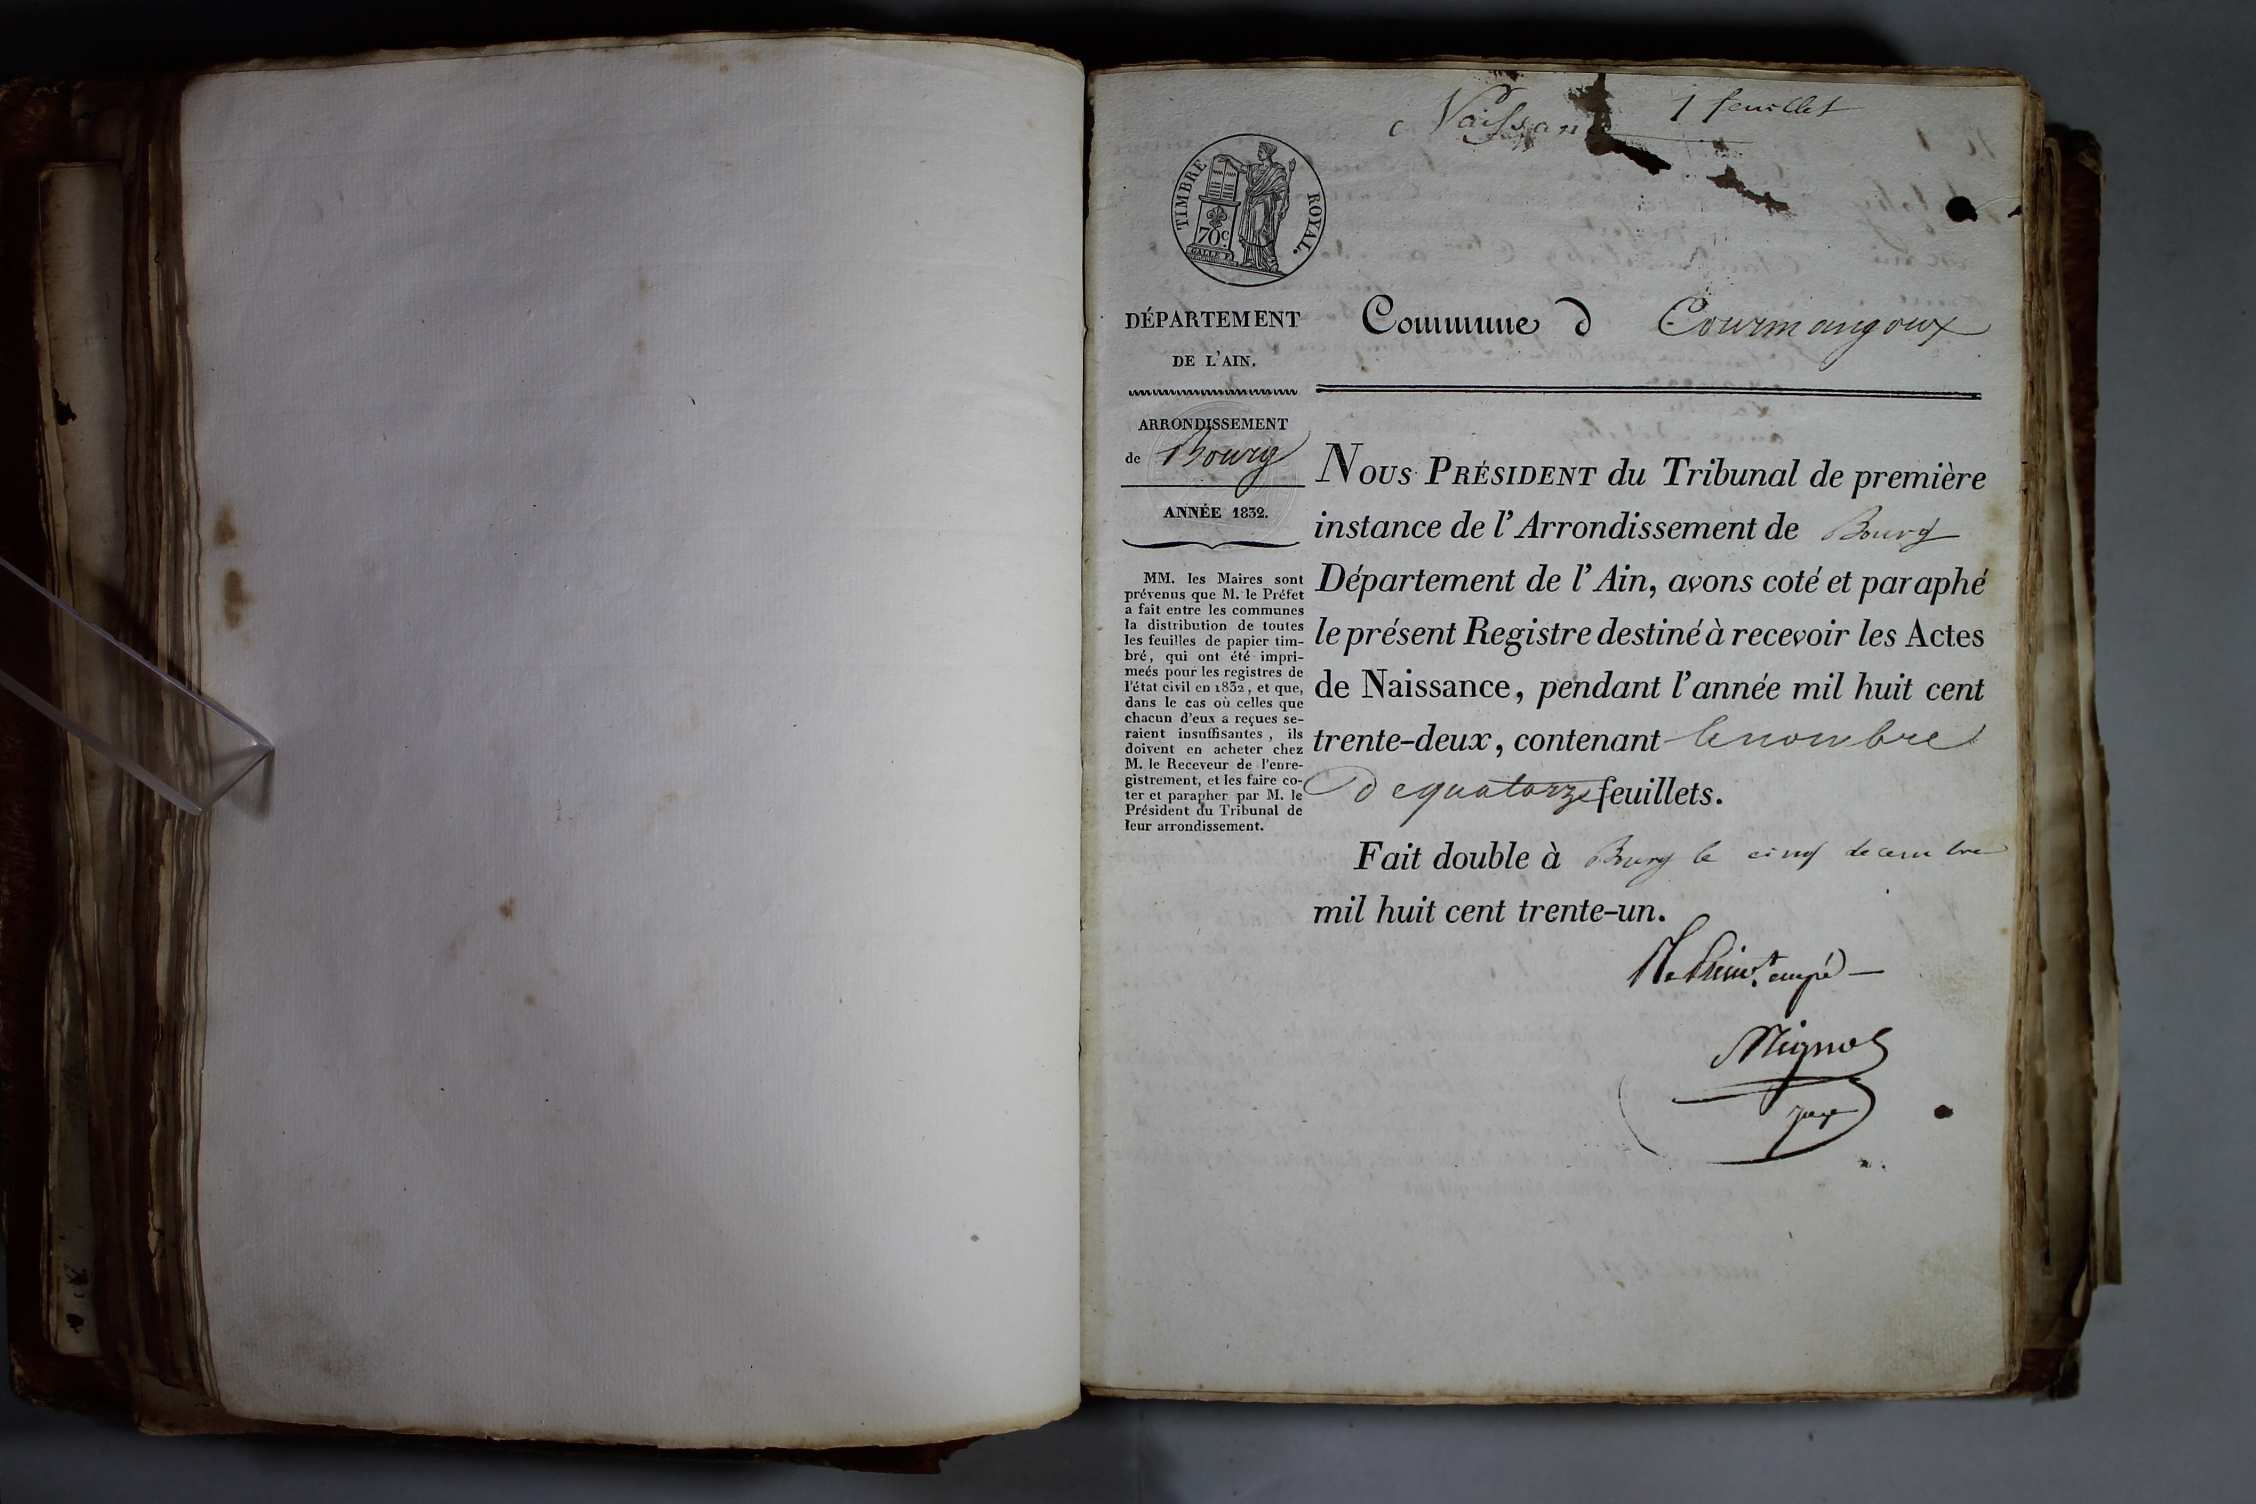 Naissan 1 feuillet
TIMBRE ROYAL.
70c
GALLE F.
DÉPARTEMENT
DE L'AIN.
ARRONDISSEMENT
de Bourg
ANNÉE 1832.
MM. les Maires sont
prévenus que M. le Préfet
a fait entre les communes
la distribution de toutes
les feuilles de papier tim-
bré, qui ont été impri-
meés pour les registres de
l'état civil en 1832, et que,
dans le cas où celles que
chacun d'eux a reçues se-
raient insuffisantes, ils
doivent en acheter chez
M. le Receveur de l'enre-
gistrement, et les faire co-
ter et parapher par M. le
Président du Tribunal de
leur arrondissement.
Commune d Courmangoux
NOUS PRÉSIDENT du Tribunal de première
instance de l'Arrondissement de Bourg
Département de l'Ain, avons coté et paraphé
le présent Registre destiné à recevoir les Actes
de Naissance, pendant l'année mil huit cent
trente-deux, contenant le nombre
de quatorze feuillets.
Fait double à Bourg le cinq decembre
mil huit cent trente-un.
empé
juge